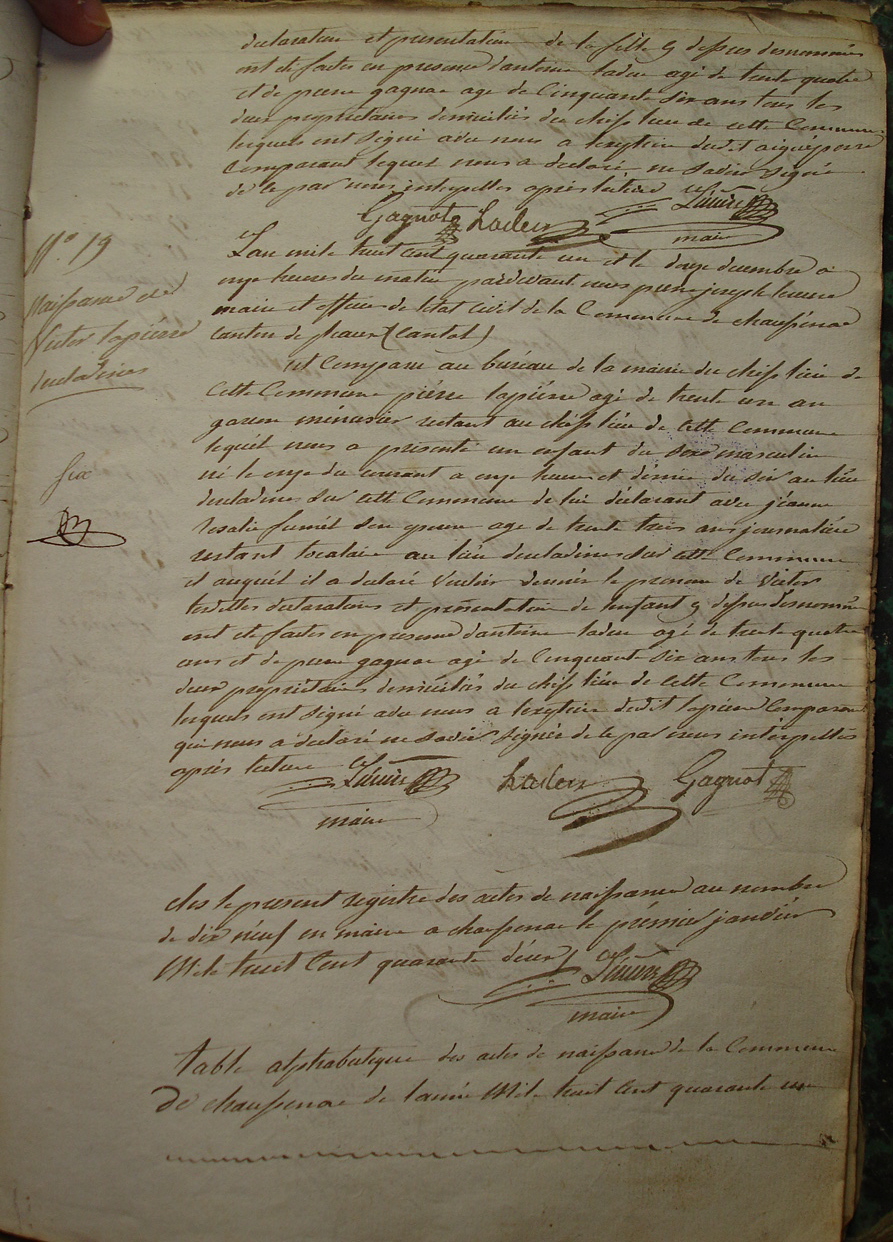 declaration et presentation de la fille q dessus desnommée
ont ete faites en presence d'antoine ladeu agé de trente quatre
et de pierre gagnac age de Cinquante six ans tous les
deux proprietaires domiciliés du chef lieu de cette Commune
lesquels ont signé avec nous a lexeption dudit aigueperse
Comparant lequel nous a declaré ne savoir signer
de ce par nous interpellés après lecture
Gagnot Ladeu
maire
N.o 19
Naissance de
Victor lapierre
L'an mile huit cent quarante un et le douze decembre a
onze heures du matin pardevant nous pierre joseph
maire et officier de letat civil de la Commune de chaussenac
Canton de pleaux (Cantal)
est Comparu au bureau de la mairie du chef lieu de
cette Commune pierre lapierre agé de trente un an
garçon ménuisier restant au chef lieu de cette Commune
lequel nous a présenté un enfant du sexe masculin
né le onze du courant a onze heures et démie du soir au lieu
sur cette Commune de lui déclarant avec jéanne
rosalie son epouse age de trente trois ans journalière
restant locataire au lieu sur cette Commune
et auquel il a declaré vouloir donner le prenom de Victor
lesdites declarations et présentation de lenfant q dessus desnommé
ont ete faites en presence d'antoine ladeu agé de trente quatre
ans et de pierre gagnac agé de Cinquante six ans tous les
deux proprietaires domiciliés du chef lieu de cette Commune
lesquels ont signé avec nous a lexeption dudit lapierre Comparant
qui nous a déclaré ne savoir signer de ce par nous interpellés
après lecture
Ladeu Gagnot
maire
clos le present registre des actes de naissance au nombre
de dix neuf en mairie a chaussenac le prémier janvier
Mile huit Cent quarante deux
maire
table alphabetique des actes de naissance de la Commune
De chaussenac de lannée Mile huit Cent quarante un